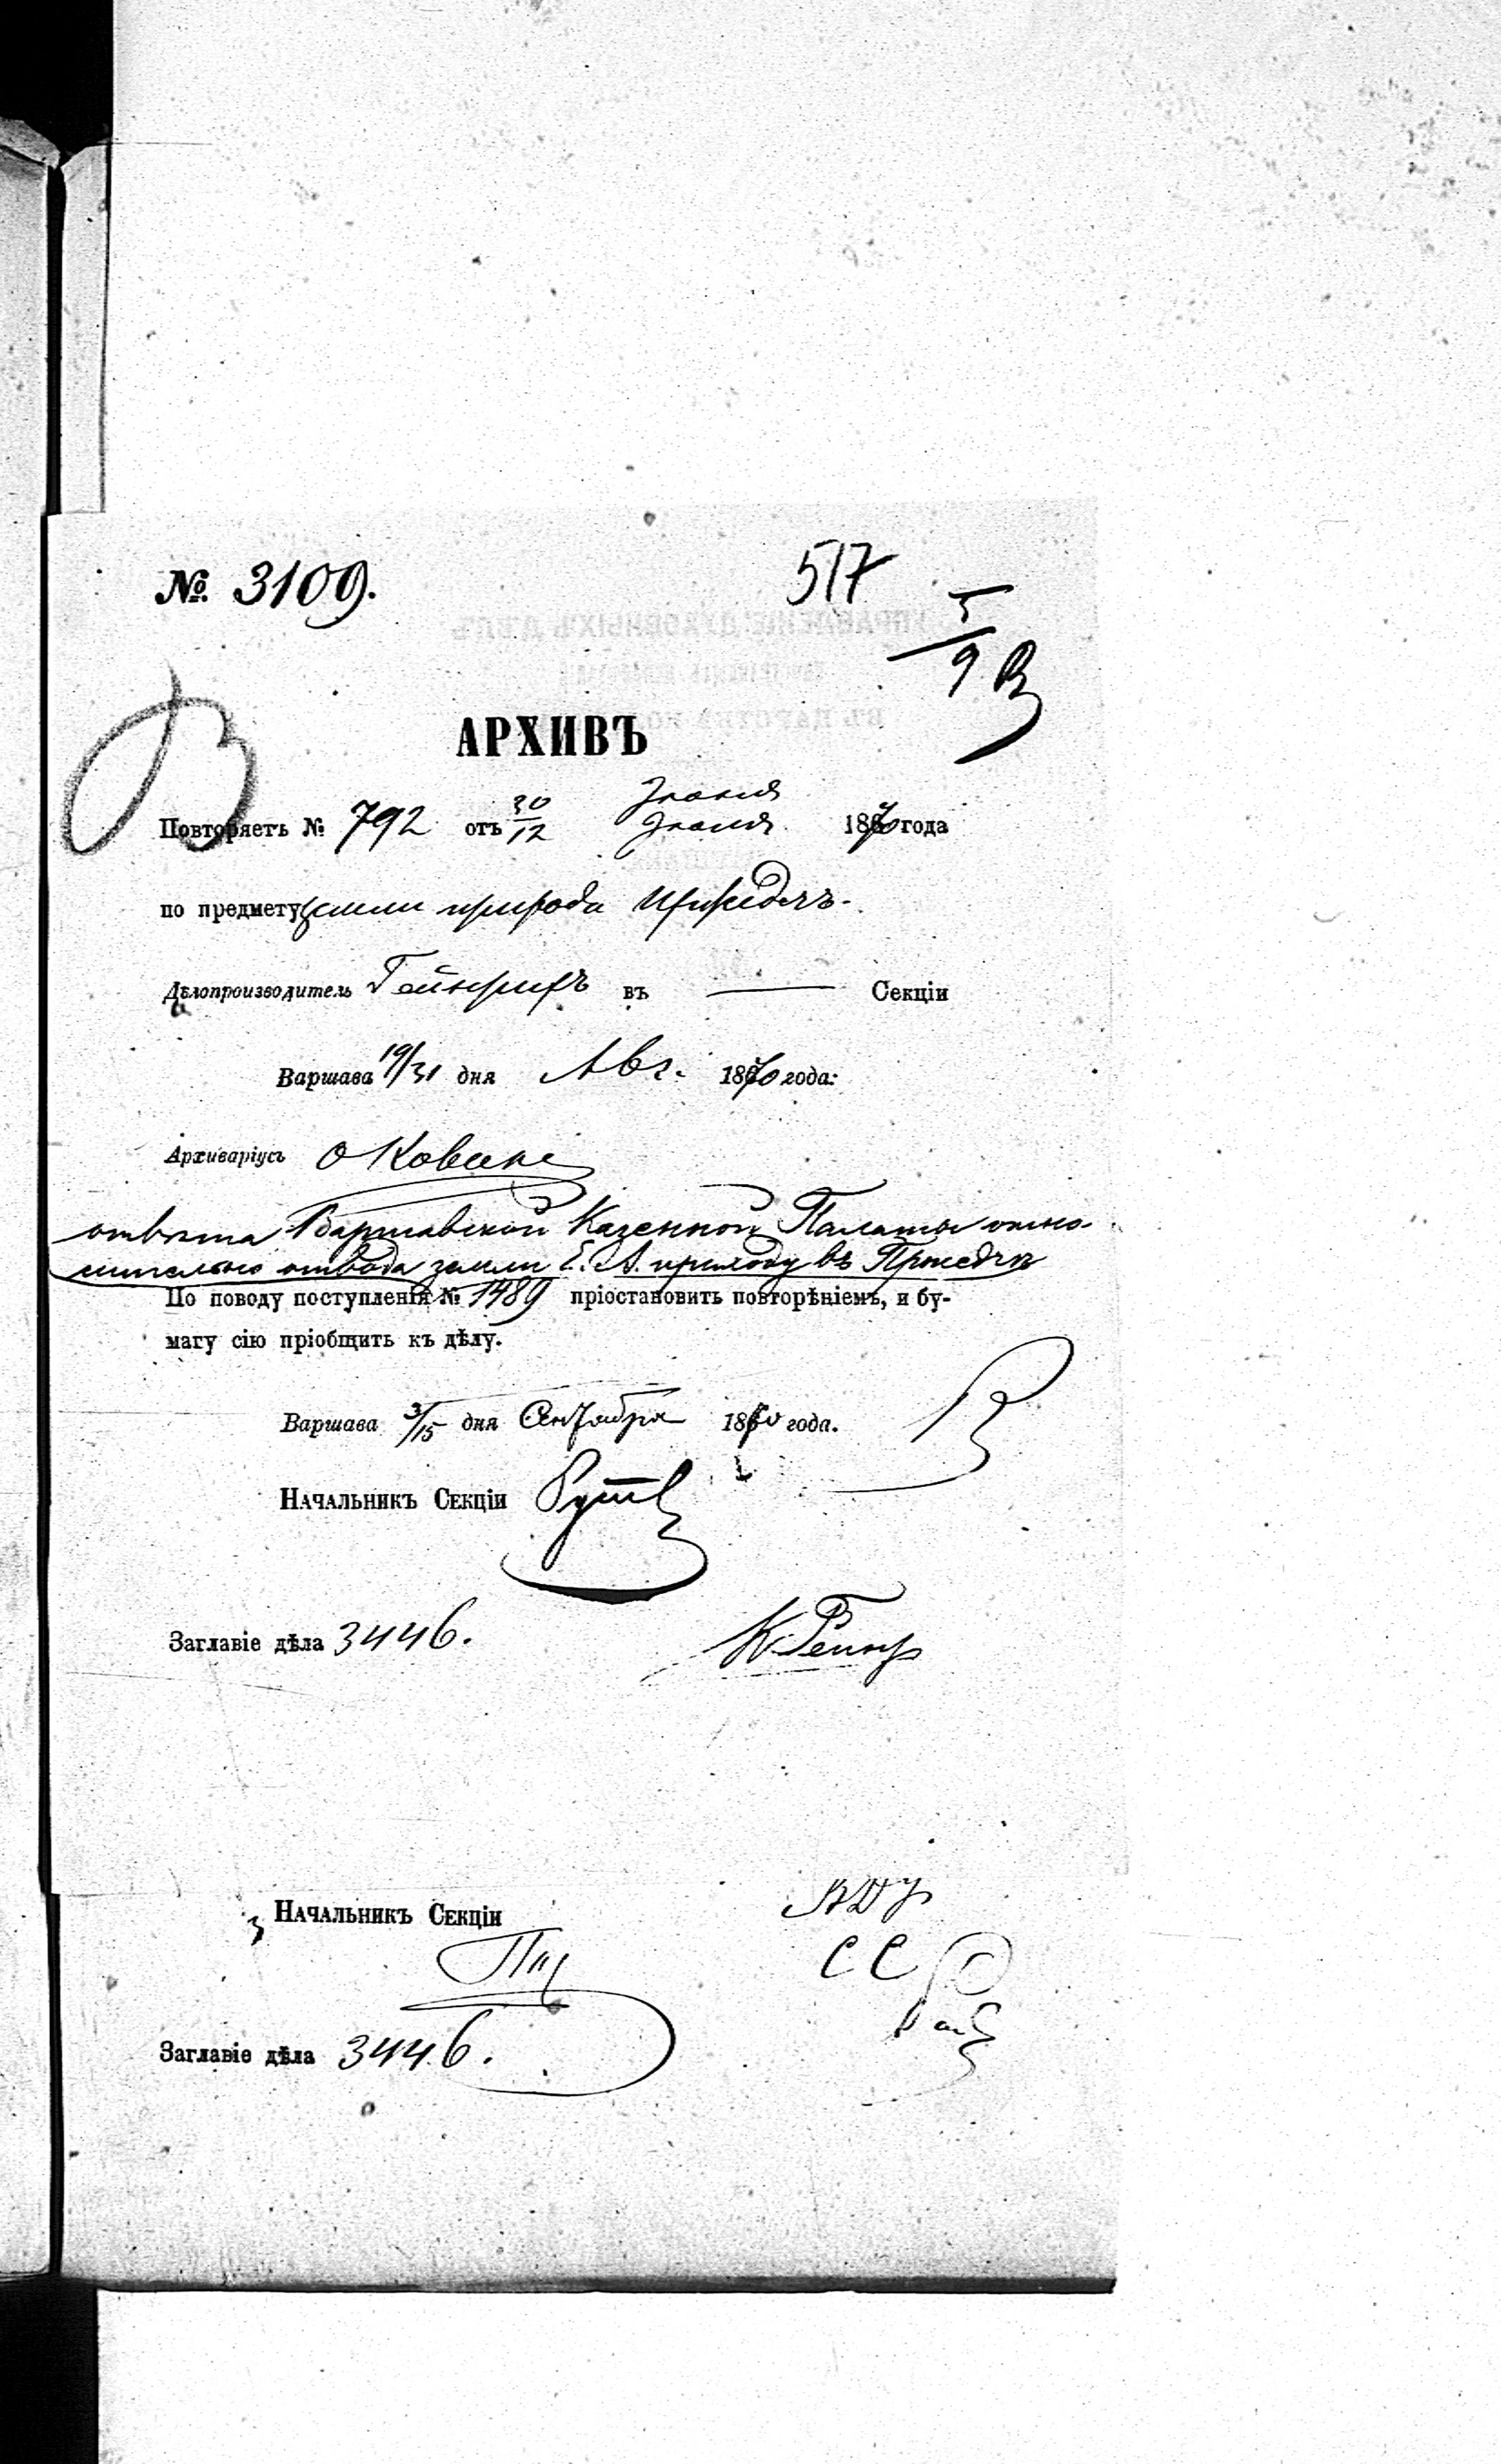 № 3109.
517
5/9 В
АРХИВЪ
Повторяетъ № 792 отъ 30/12 Іюня Іюля 1870 года
по предмету земли прихода
Дѣлопроизводитель Гейнрихъ въ — Секціи
Варшава 19/31 дня Авг. 1870 года:
Архиваріусъ
отвѣта Варшавской Казенной Палаты относ-
ительно отвода земли Е. А. приходу въ Пржедечѣ
По поводу поступленія № 1489 пріостановить повторѣніемъ, и бу-
магу сію пріобщить къ дѣлу.
Варшава 3/15 дня Сентября 1870 года.
Начальникъ Секціи
Заглавіе дѣла 3446.
Начальникъ Секціи
Заглавіе дѣла 3446.